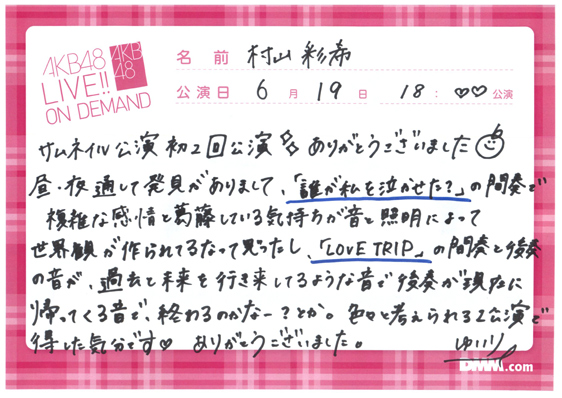 AKB48
LIVE!!
ON DEMAND
AKB
48
名前 村山彩希
公演日 6月19日 18:♡♡公演
サムネイル公演初2回公演 ありがとうございました
昼・夜通して発見がありまして、「誰が私を泣かせた?」の間奏で
複雑な感情と葛藤している気持ちが音と照明によって
世界観が作られてるなって思ったし、「LOVE TRIP」の間奏と後奏
の音が、過去と未来を行き来してるような音で後奏が現在に
帰ってくる音で、終わるのかなー?とか。色々と考えられる2公演で
得した気分です♡ ありがとうございました。
ゆいり
DMM.com